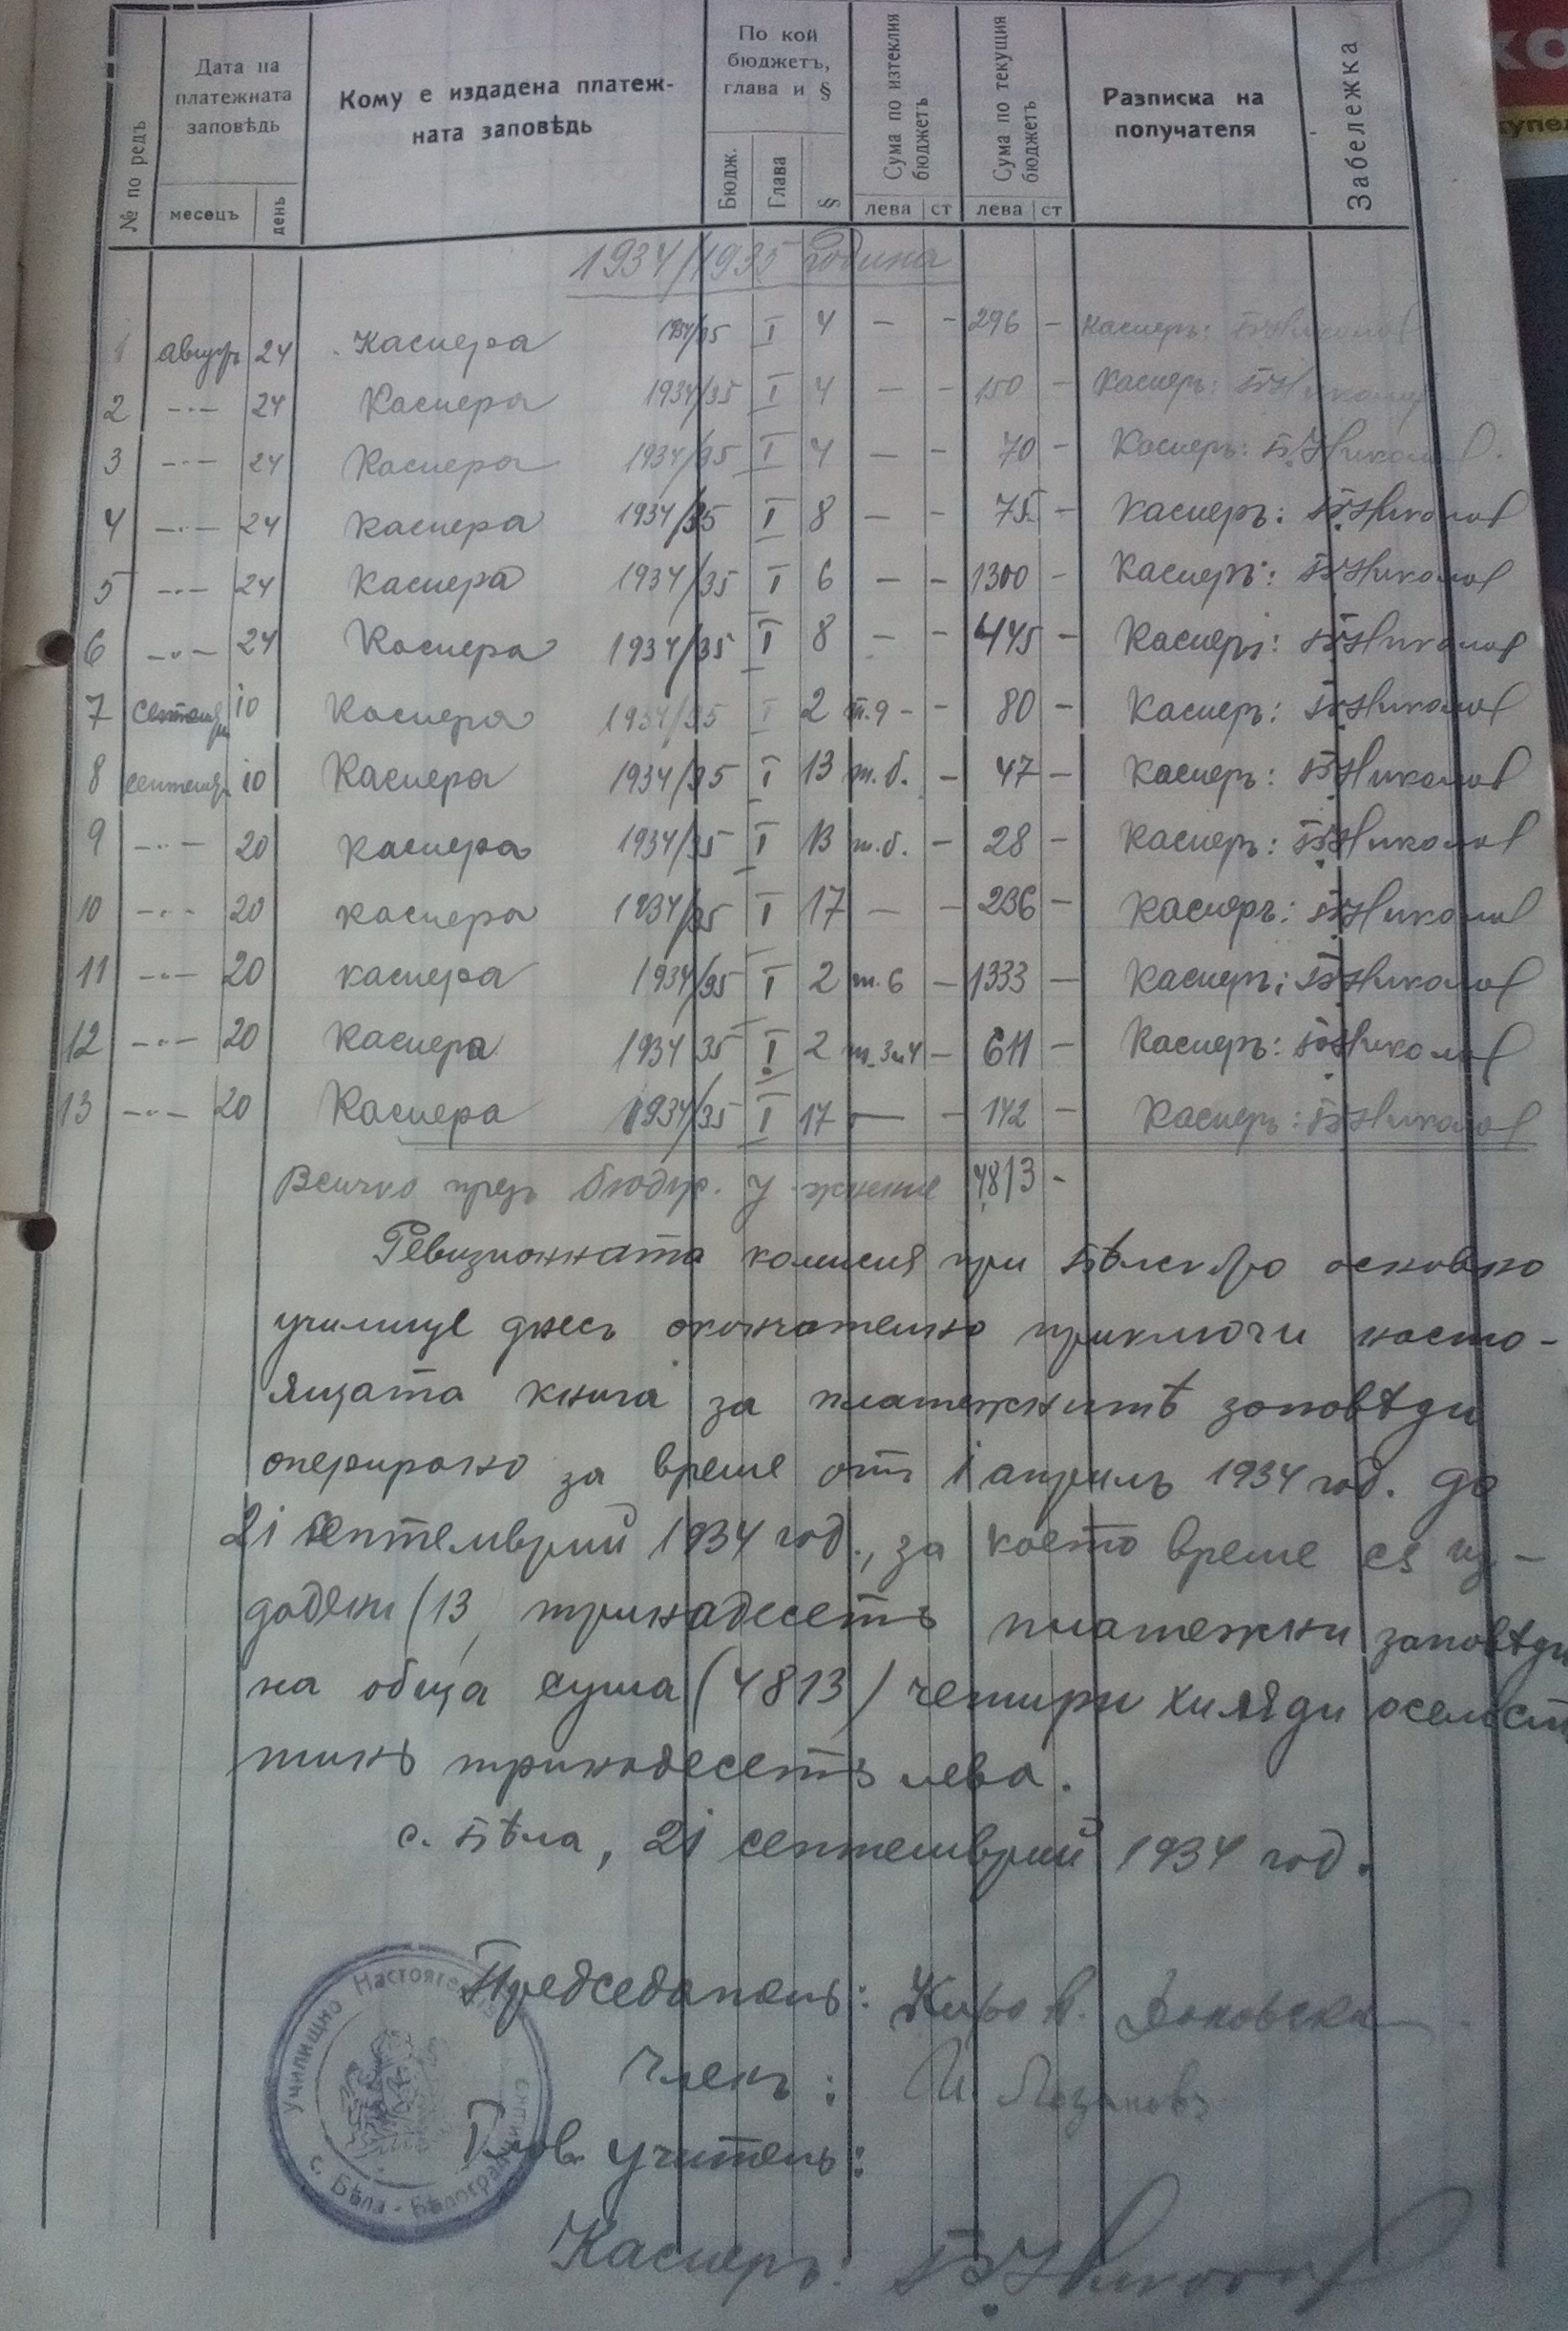 № по редъ
Дата на платежната заповѣдь
месецъ
день
Кому е издадена платежната заповѣдь
По кой бюджетъ, глава и §
Бюдж.
Глава
§
Сума по изтеклия бюджетъ
лева ст
Сума по текущия бюджетъ
лева ст
Разписка на получателя
Забележка
1934/1935 година
1 24 Касиера 1934/35 I 4 — - 296 - Касиеръ: Б. Николов
2 —"— 24 Касиера 1934/35 I 4 — - 150 - Касиеръ: Б. Николов
3 —"— 24 Касиера 1934/35 I 4 — - 70 - Касиеръ: Б. Николов
4 —"— 24 Касиера 1934/35 I 8 — - 75 - Касиеръ: Б. Николов
5 —"— 24 Касиера 1934/35 I 6 — - 1300 - Касиеръ: Б. Николов
6 —"— 24 Касиера 1934/35 I 8 — - 445 - Касиеръ: Б. Николов
7 10 Касиера 1934/35 I 2 т. 9 - - 80 - Касиеръ: Б. Николов
8 10 Касиера 1934/35 I 13 т. б. - 47 - Касиеръ: Б. Николов
9 —"— 20 Касиера 1934/35 I 13 т. б. - 28 - Касиеръ: Б. Николов
10 —"— 20 Касиера 1934/35 I 17 — - 236 - Касиеръ: Б. Николов
11 —"— 20 Касиера 1934/35 I 2 т. 6 - 1333 - Касиеръ: Б. Николов
12 —"— 20 Касиера 1934/35 I 2 т. 3 и 4 - 611 - Касиеръ: Б. Николов
13 —"— 20 Касиера 1934/35 I 17 — - 142 - Касиеръ: Б. Николов
Всичко презъ бюдж. 4813 -
Ревизионната комисия при Бѣлск. осн�овно
училище днесъ окончателно приключи насто-
ящата книга за платежнитѣ заповѣди
оперирано за време отъ 1 априлъ 1934 год. до
21 септемврий 1934 год., за което време ся из-
дадени (13) тринадесетъ платежни заповѣди
на обща сума (4813) четири хиляди осемст
тинъ тринадесетъ лева.
с. Бѣла, 21 септемврий 1934 год.
Председатель: Киро
Членъ: И. Лозановъ
Глав. учитель:
Касиеръ: Б. Николов
Училищно Настоятелство
с. Бѣла - Бѣлоградчишко